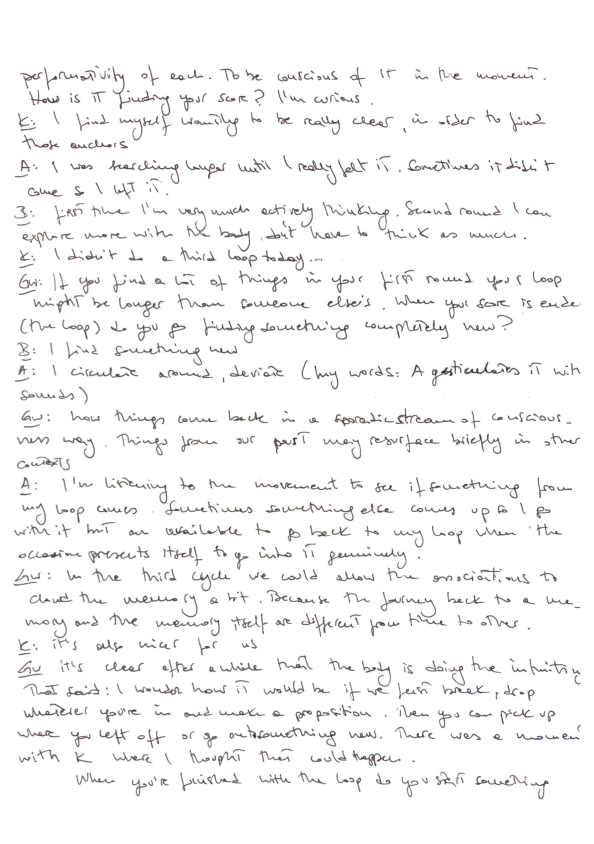 performativity of each. To be conscious of it in the moment.
How is it finding your score? I'm curious.
K: I find myself wanting to be really clear, in order to find
those anchors
A: I was searching longer until I really felt it. Sometimes it didn't
come so I left it.
B: First time I'm very much actively thinking. Second round I can
explore more with the body, don't have to think as much.
K: I didn't do a third loop today...
GW: If you find a lot of things in your first round your loop
might be longer than someone else's. When your score is ended
(the loop) do you go finding something completely new?
B: I find something new
A: I circulate around, deviate (my words: A gesticulates it with
sounds)
GW: how things come back in a sporadic stream of conscious-
ness way. Things from our past may resurface briefly in other
contexts
A: I'm listening to the movement to see if something from
my loop comes. Sometimes something else comes up so I go
with it but am available to go back to my loop when the
occasion presents itself to go into it genuinely.
GW: In the third cycle we could allow the associations to
cloud the memory a bit. Because the journey back to a me-
mory and the memory itself are different from time to other.
K: it's also nicer for us
GW it's clear after a while that the body is doing the intuiting
That said: I wonder how it would be if we just break, drop
whatever you're in and make a proposition. Then you can pick up
where you left off or go onto something new. There was a moment
with K where I thought that could happen.
When you're finished with the loop do you start something